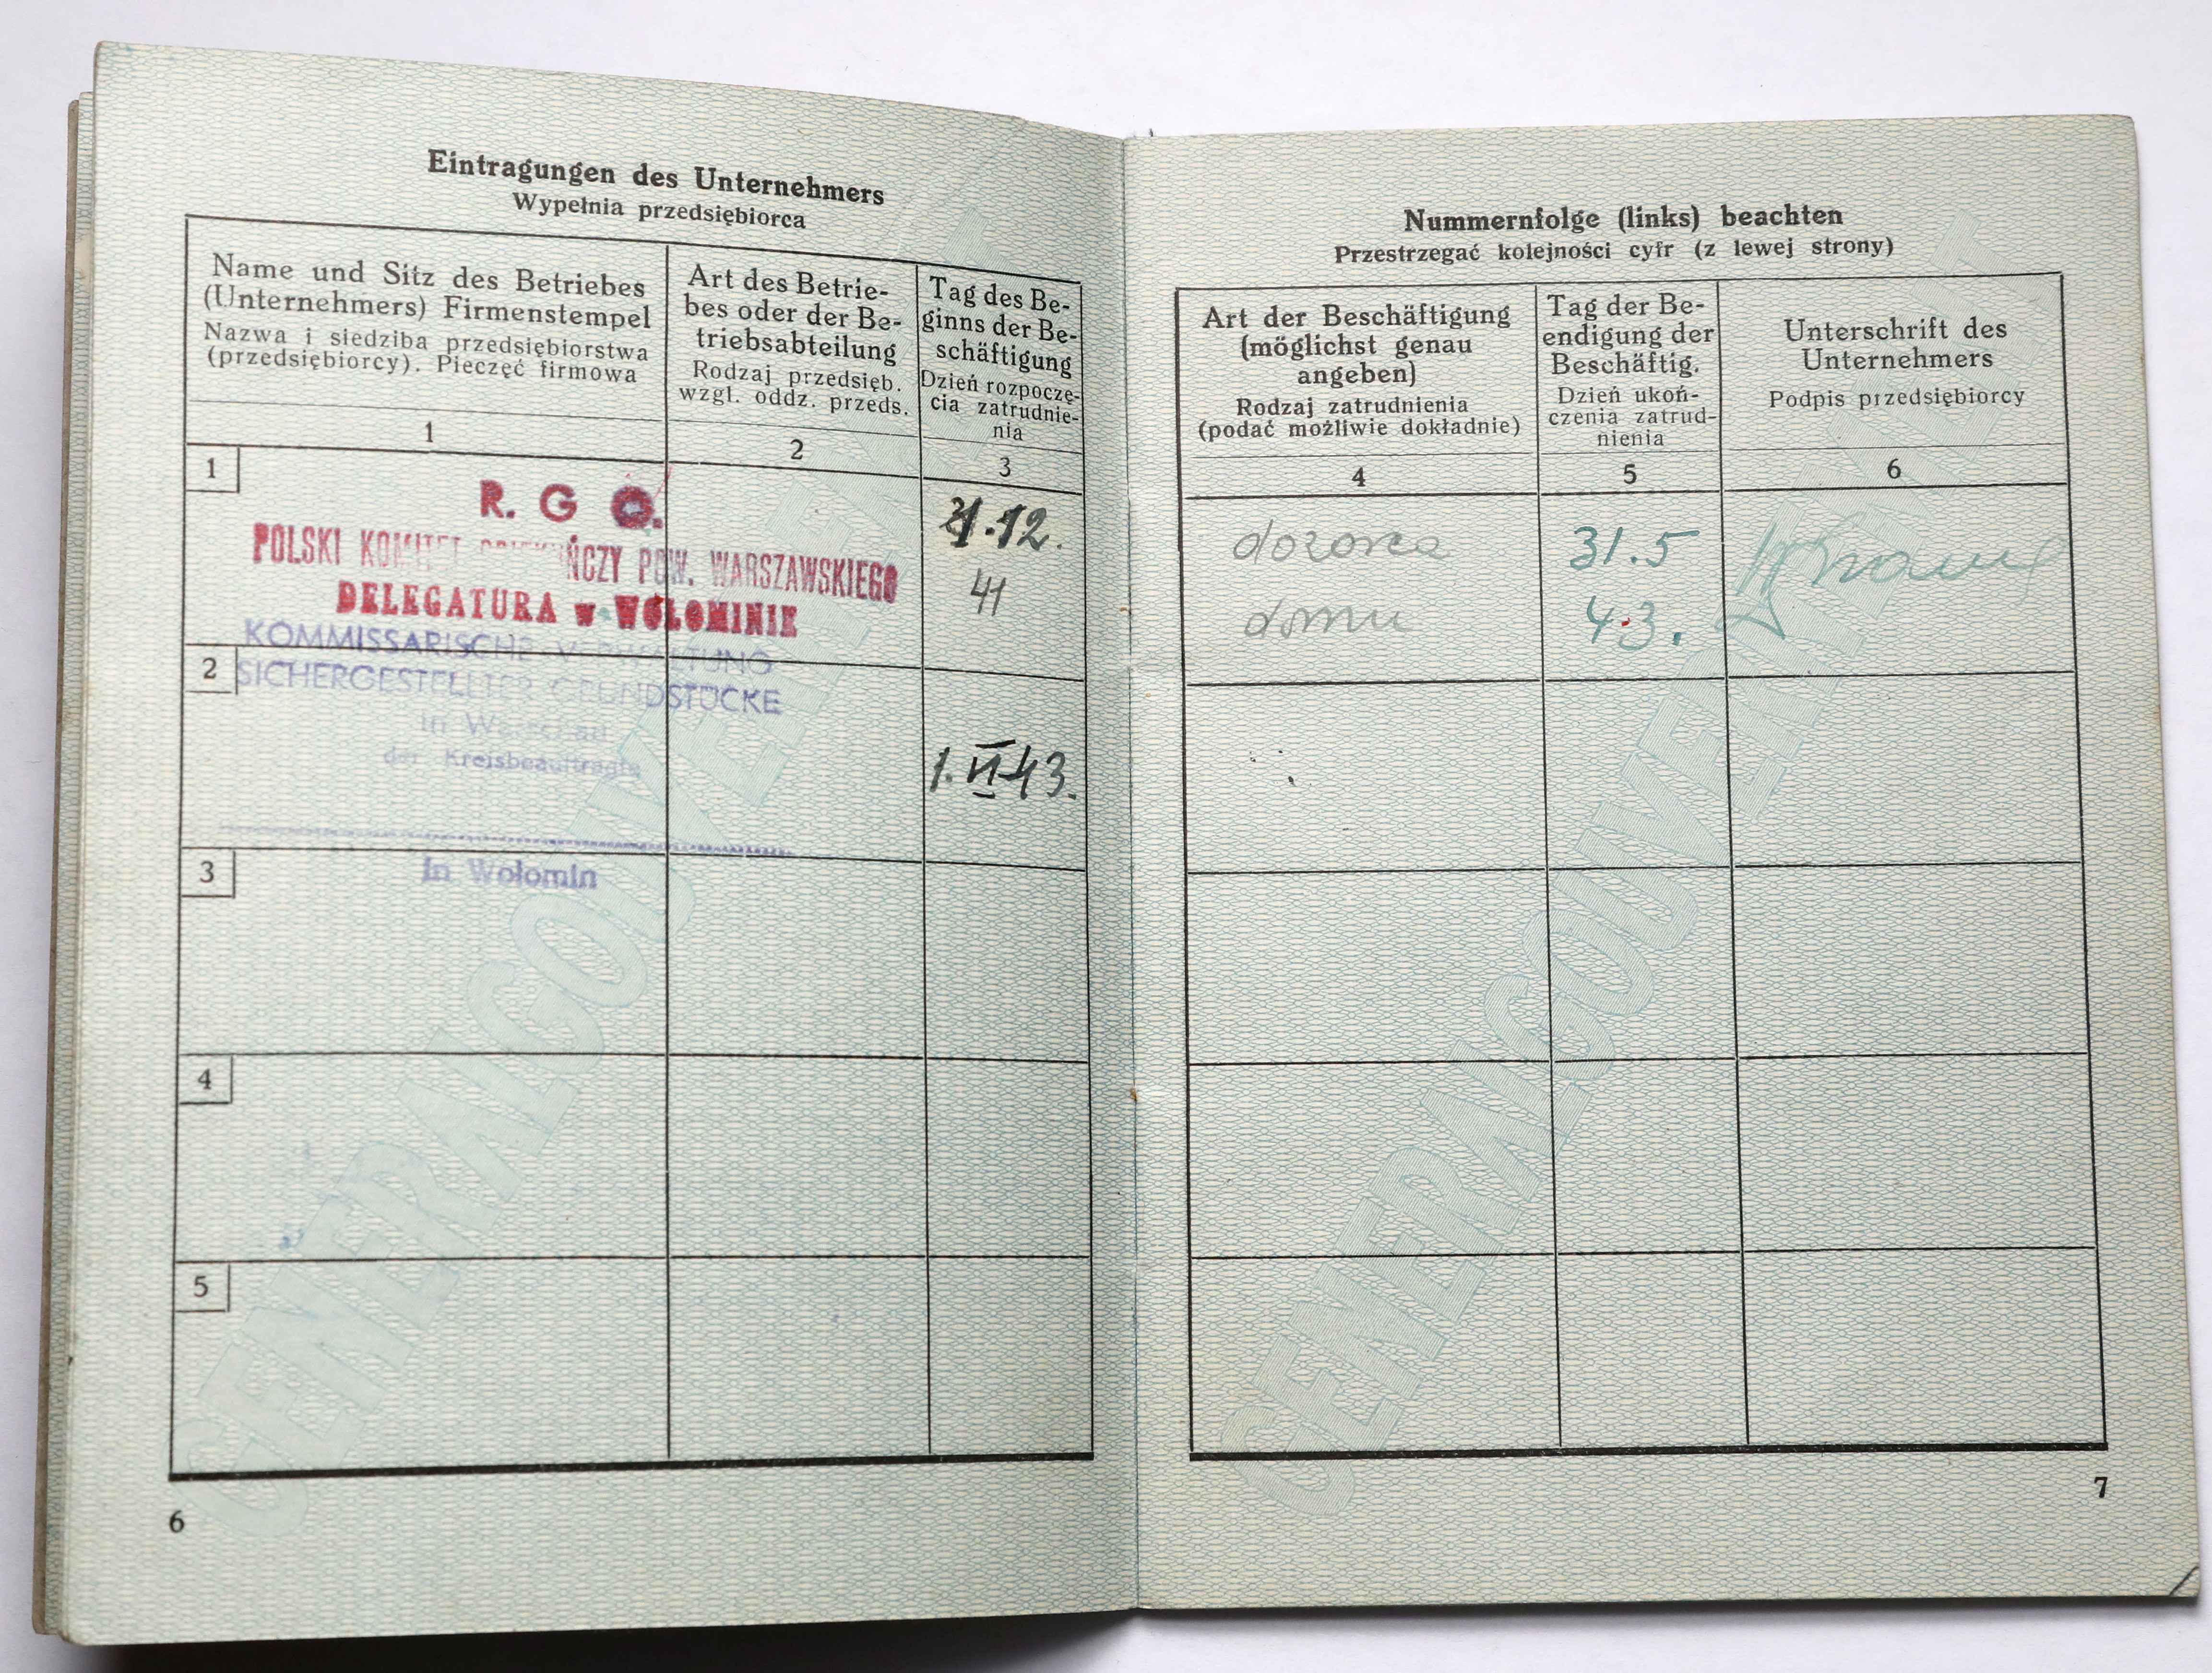 Eintragungen des Unternehmers
Wypełnia przedsiębiorca
Name und Sitz des Betriebes
(Unternehmers) Firmenstempel
Nazwa i siedziba przedsiębiorstwa
(przedsiębiorcy). Pieczęć firmowa
Art des Betrie-
bes oder der Be-
triebsabteilung
Rodzaj przedsięb.
wzgl. oddz. przeds.
Tag des Be-
ginns der Be-
schäftigung
Dzień rozpoczę-
cia zatrudnie-
nia
1
2
3
1
R. G O.
POLSKI KOMITET OPIEKUŃCZY POW. WARSZAWSKIEGO
DELEGATURA w WOŁOMINIE
31.12.
41
2
KOMMISSARISCHE VERWALTUNG
SICHERGESTELLTER GRUNDSTÜCKE
in Warschau
der Kreisbeauftragte
1.VI 43.
3
in Wołomin
4
5
6
GENERALGOUVERNEMENT
Nummernfolge (links) beachten
Przestrzegać kolejności cyfr (z lewej strony)
Art der Beschäftigung
(möglichst genau
angeben)
Rodzaj zatrudnienia
(podać możliwie dokładnie)
Tag der Be-
endigung der
Beschäftig.
Dzień ukoń-
czenia zatrud-
nienia
Unterschrift des
Unternehmers
Podpis przedsiębiorcy
4
5
6
dozorca
domu
31.5
43.
7
GENERALGOUVERNEMENT